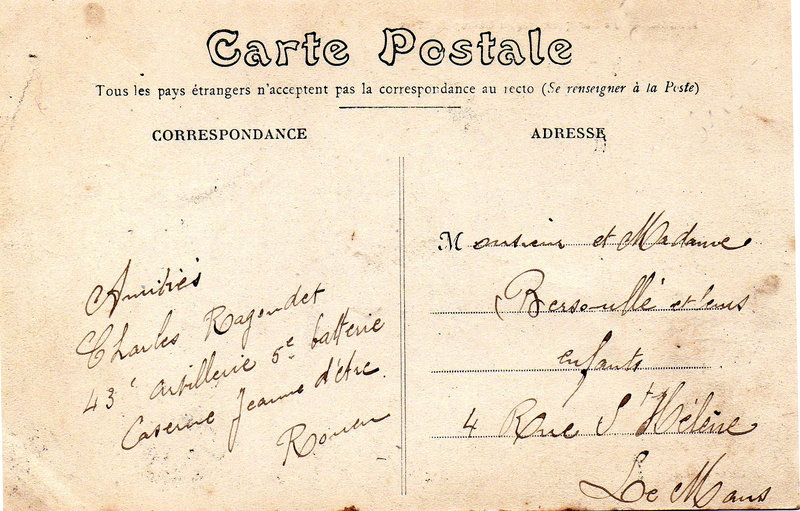 Carte Postale
Tous les pays étrangers n'acceptent pas la correspondance au recto (Se renseigner à la Poste)
CORRESPONDANCE
ADRESSE
Amitiés
Charles Ragondet
43e artillerie 5e batterie
Caserne Jeanne d'Arc
Rouen
Monsieur et Madame
Bersoullé et leurs
enfants
4 Rue St Hélène
Le Mans